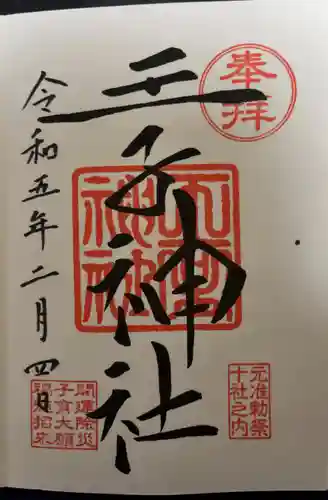 奉拝
王子神社
令和五年二月四日
王子神社
元准勅祭
十社之内
開運除災
子育大願